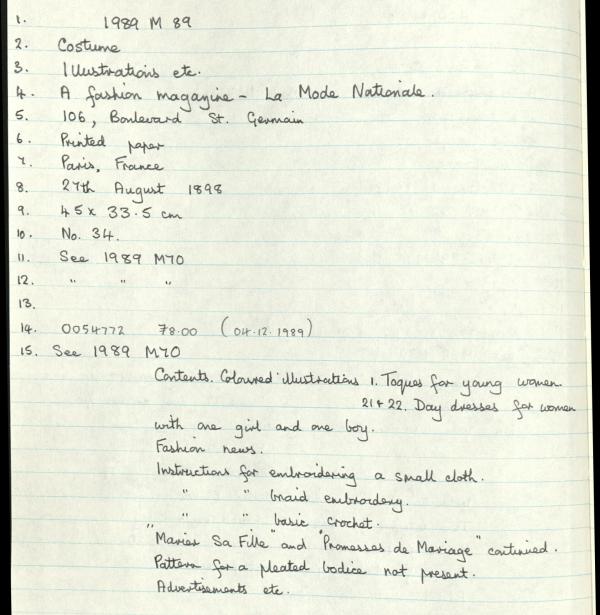 1. 1989 M 89
2. Costume
3. Illustrations etc.
4. A fashion magazine - La Mode Nationale.
5. 106, Boulevard St. Germain
6. Printed paper
7. Paris, France
8. 27th August 1898
9. 45 x 33.5 cm
10. No. 34.
11. See 1989 M70
12. " " "
13.
14. 0054772 78.00 (04.12.1989)
15. See 1989 M70
Contents. Coloured illustrations 1. Toques for young women.
21+22. Day dresses for women
with one girl and one boy.
Fashion news.
Instructions for embroidering a small cloth.
" " braid embroidery.
" " basic crochet.
"Marier Sa Fille" and "Promesses de Mariage" continued.
Pattern for a pleated bodice not present.
Advertisements etc.